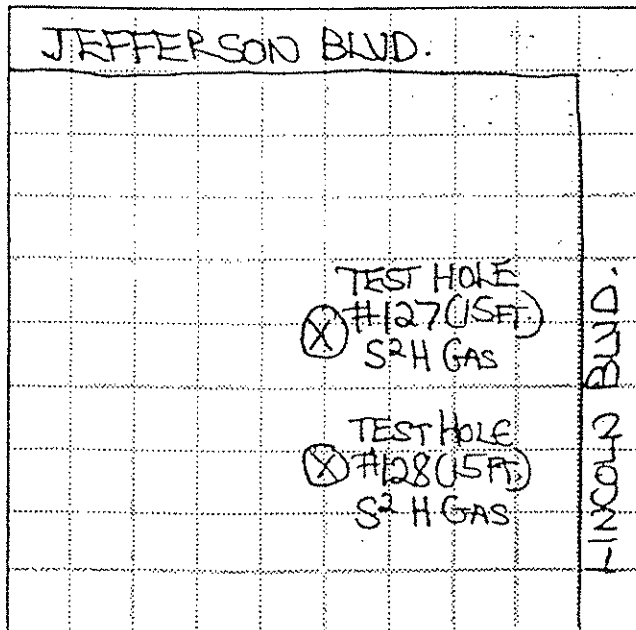 JEFFERSON BLVD.
TEST HOLE
#127 (15FT)
S² H GAS
TEST HOLE
#128 (15FT)
S² H GAS
LINCOLN BLVD.